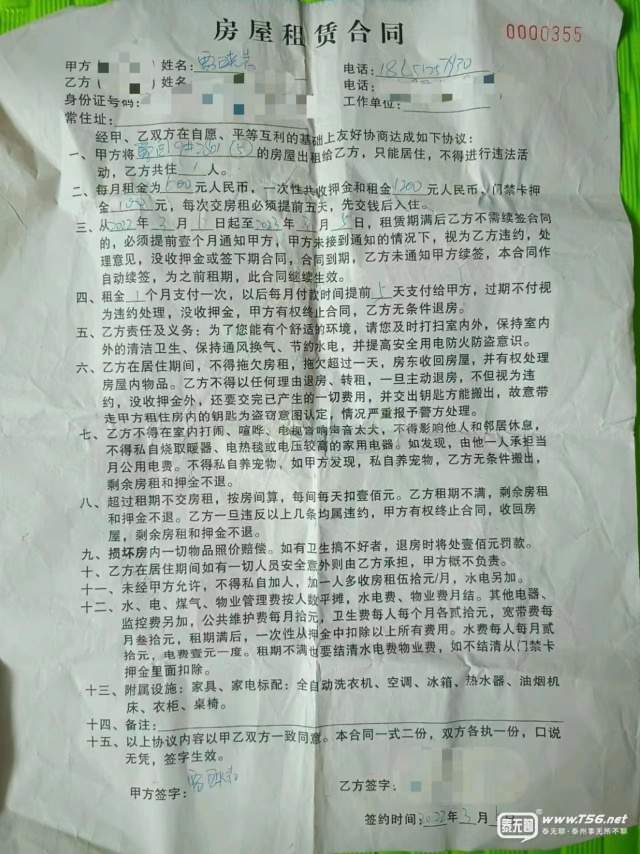 房屋租赁合同
0000355
甲方 姓名: 电话:
乙方 姓名: 电话:
身份证号码: 工作单位:
常住址:
经甲、乙双方在自愿、平等互利的基础上友好协商达成如下协议:
一、甲方将 的房屋出租给乙方,只能居住,不得进行违法活
动,乙方共住 1 人。
二、每月租金为 元人民币,一次性共收押金和租金1200元人民币、门禁卡押
金 元,每次交房租必须提前五天,先交钱后入住。
三、从2022年3月1日起至2023年 月5日,租赁期满后乙方不需续签合同
的,必须提前壹个月通知甲方,甲方未接到通知的情况下,视为乙方违约,处
理意见,没收押金或签下期合同,合同到期,乙方未通知甲方续签,本合同作
自动续签,为之前租期,此合同继续生效。
四、租金1个月支付一次,以后每月付款时间提前5天支付给甲方,过期不付视
为违约处理,没收押金,甲方有权终止合同,乙方无条件退房。
五、乙方责任及义务:为了您能有个舒适的环境,请您及时打扫室内外,保持室内
外的清洁卫生、保持通风换气、节约水电,并提高安全用电防火防盗意识。
六、乙方在居住期间,不得拖欠房租,拖欠超过一天,房东收回房屋,并有权处理
房屋内物品。乙方不得以任何理由退房、转租,一旦主动退房,不但视为违
约,没收押金外,还要交完已产生的一切费用,并交出钥匙方能搬出,故意带
走甲方租住房内的钥匙为盗窃意图认定,情况严重报予警方处理。
七、乙方不得在室内打闹、喧哗、电视音响声音太大,不得影响他人和邻居休息,
不得私自烧取暖器、电热毯或电压较高的家用电器。如发现,由他一人承担当
月公用电费。不得私自养宠物,如甲方发现,私自养宠物,乙方无条件搬出,
剩余房租和押金不退。
八、超过租期不交房租,按房间算,每间每天扣壹佰元。乙方租期不满,剩余房租
和押金不退。乙方一旦违反以上几条均属违约,甲方有权终止合同,收回房
屋,剩余房租和押金不退。
九、损坏房内一切物品照价赔偿。如有卫生搞不好者,退房时将处壹佰元罚款。
十、乙方在居住期间如有一切人员安全意外则由乙方承担,甲方概不负责。
十一、未经甲方允许,不得私自加人,加一人多收房租伍拾元/月,水电另加。
十二、水、电、煤气、物业管理费按人数平摊,水电费、物业费月结。其他电器、
监控费另加,公共维护费每月拾元,卫生费每人每个月各贰拾元,宽带费每
月叁拾元,租期满后,一次性从押金中扣除以上所有费用。水费每人每月贰
拾元,电费壹元一度。租期不满也要结清水电费物业费,如不结清从门禁卡
押金里面扣除。
十三、附属设施:家具、家电标配:全自动洗衣机、空调、冰箱、热水器、油烟机
床、衣柜、桌椅。
十四、备注:
十五、以上协议内容以甲乙双方一致同意。本合同一式二份,双方各执一份,口说
无凭,签字生效。
甲方签字: 乙方签字:
签约时间:2022年3月1
泰无聊 www.T56.net
泰无聊·泰州事无所不聊